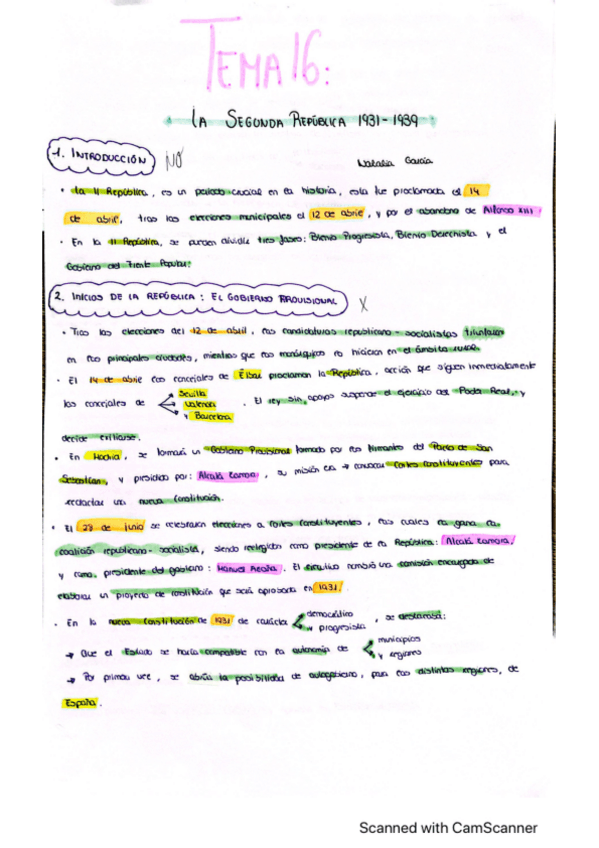 TEMA 16:
LA SEGUNDA REPÚBLICA 1931-1939
1. INTRODUCCIÓN NO
Natalia García
• La II República, es un periodo crucial en la historia, esta fue proclamada el 14
de abril, tras las elecciones municipales el 12 de abril, y por el abandono de Alfonso XIII.
• En la II República, se pueden dividir tres fases: Bienio Progresista, Bienio Derechista y el
Gobierno del Frente Popular.
2. INICIOS DE LA REPÚBLICA: EL GOBIERNO PROVISIONAL X
• Tras las elecciones del 12 de abril, las candidaturas republicano-socialistas triunfaron
en las principales ciudades, mientras que los monárquicos lo hicieron en el ámbito rural.
• El 14 de abril los concejales de Éibar proclaman la República, acción que siguen inmediatamente
los concejales de
Sevilla
Valencia
y Barcelona
. El rey sin apoyo suspende el ejercicio del Poder Real, y
decide exiliarse.
• En Madrid, se formará un Gobierno Provisional formado por los firmantes del Pacto de San
Sebastían, y presidido por: Alcalá Zamora, su misión era → convocar Cortes Constituyentes para
redactar una nueva Constitución.
• El 28 de junio se celebraron elecciones a Cortes Constituyentes, las cuales la gana la
coalición republicano-socialista, siendo reelegido como presidente de la República: Alcalá Zamora,
y como presidente del gobierno: Manuel Azaña. El ejecutivo nombró una comisión encargada de
elaborar un proyecto de constitución que será aprobada en 1931.
• En la nueva Constitución de 1931 de carácter
democrático
y progresista
, se destacará:
→ Que el Estado se hacía compatible con la autonomía de
municipios
y regiones
→ Por primera vez, se abría la posibilidad de autogobierno, para las distintas regiones, de
España.
Scanned with CamScanner